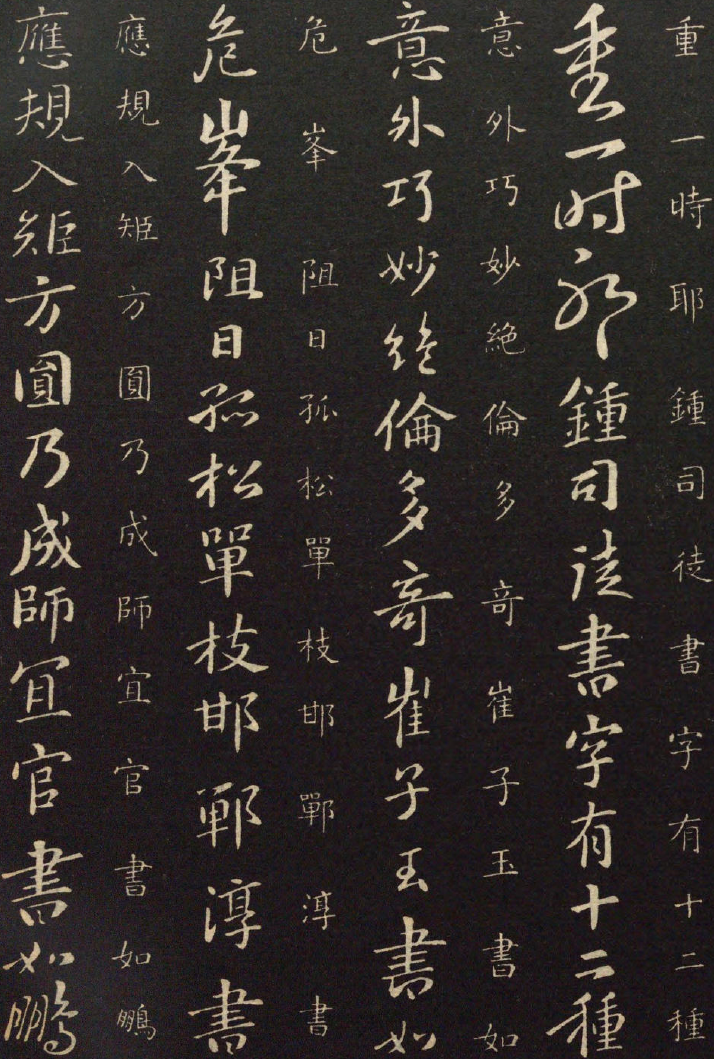 重一時耶鍾司徒書字有十二種
重一时耶鍾司徒書字有十二種
意外巧妙絶倫多竒崔子玉書如
意外巧妙絶倫多竒崔子玉書如
危峯阻日孤松單枝邯鄲淳書
危峯阻日孤松單枝邯鄲淳書
應規入矩方圓乃成師宜官書如鵬
應規入矩方圓乃成師宜官書如鵬